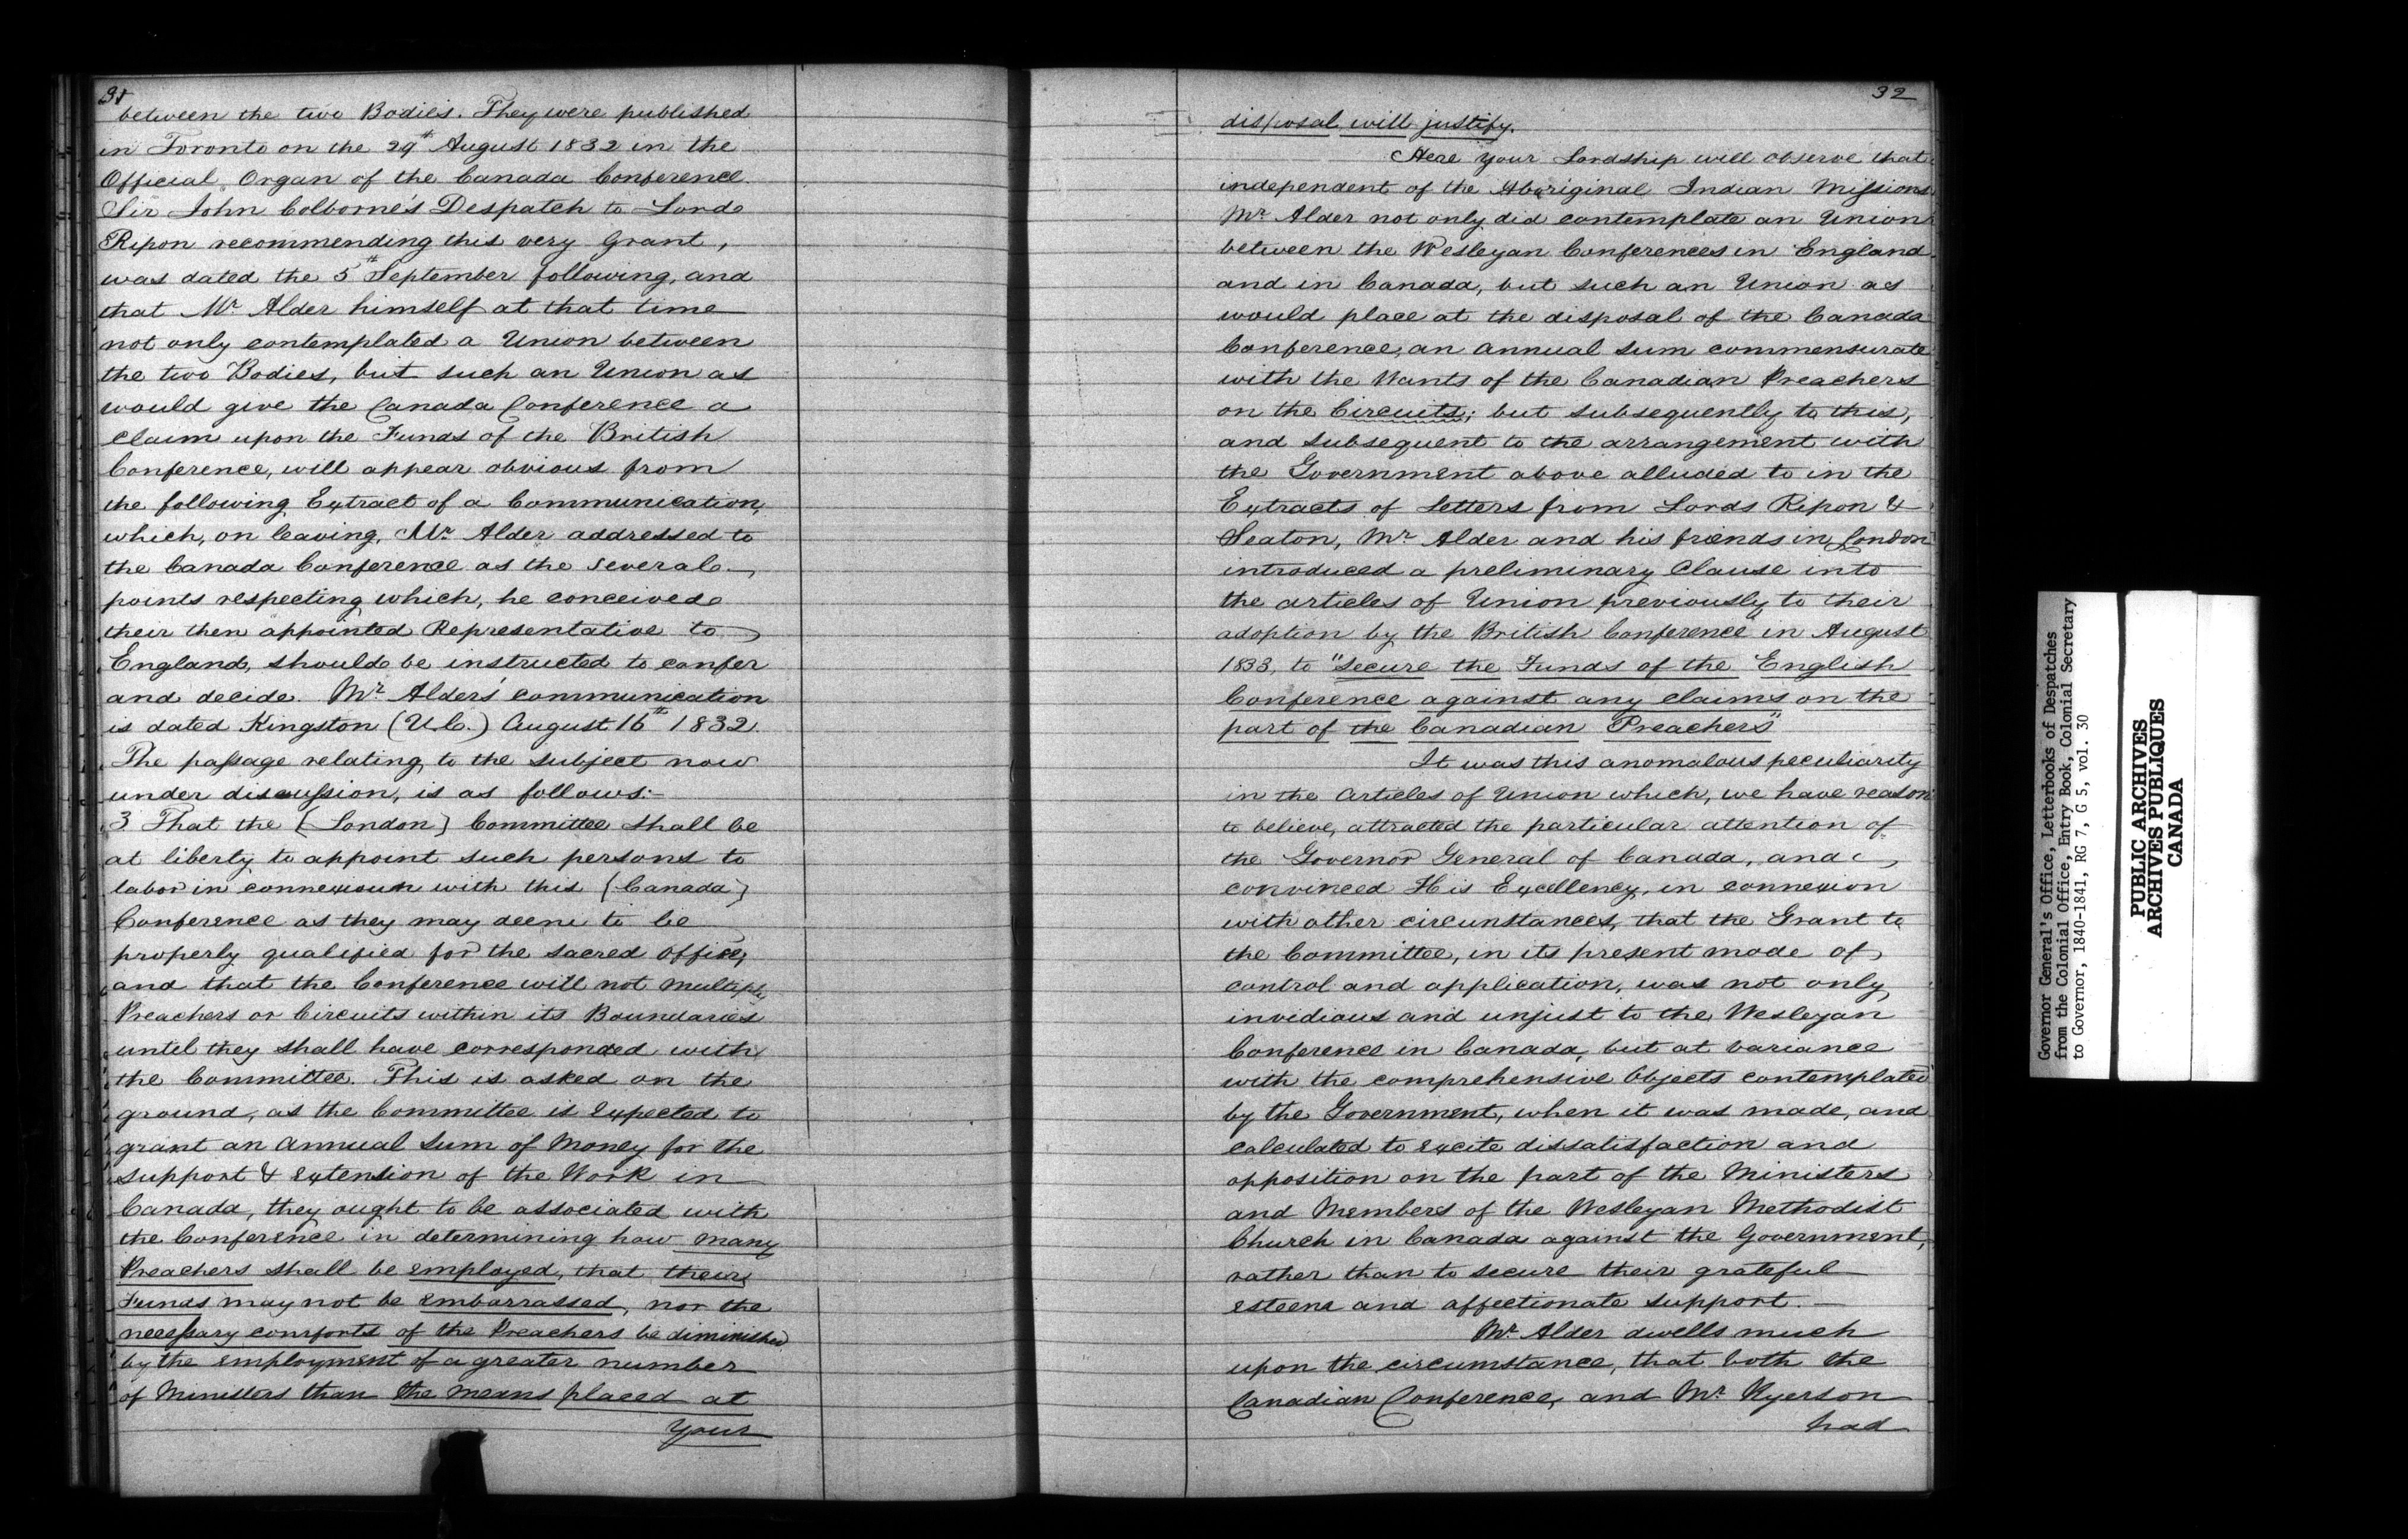 31
between the two Bodies. They were published
in Toronto on the 29th August 1832 in the
Official Organ of the Canada Conference.
Sir John Colborne's Despatch to Lord
Ripon recommending this very Grant,
was dated the 5th September following, and
that Mr Alder himself at that time
not only contemplated a Union between
the two Bodies, but such an Union as
would give the Canada Conference a
claim upon the Funds of the British
Conference, will appear obvious from
the following Extract of a Communication,
which, on leaving, Mr Alder addressed to
the Canada Conference as the several
points respecting which, he conceived
their then appointed Representative to
England, should be instructed to confer
and decide. Mr Alders' communication
is dated Kingston (U.C.) August 16th 1832.
The passage relating to the subject now
under discussion, is as follows:-
"3 That the [London] Committee shall be
"at liberty to appoint such persons to
"labor in connexioun with this [Canada]
"Conference as they may deem to be
"properly qualified for the sacred office,
"and that the Conference will not multiply
"Preachers or Circuits within its Boundaries
"until they shall have corresponded with
"the Committee. This is asked on the
"ground, as the Committee is expected to
"grant an annual sum of Money for the
"support & extension of the Work in
"Canada, they ought to be associated with
"the Conference in determining how many
"Preachers shall be employed, that their
"Funds may not be embarrassed, nor the
"necessary comforts of the Preachers be diminished
"by the employment of a greater number
"of Ministers than the means placed at
your
32
disposal will justify.
Here your Lordship will observe that
independent of the Aboriginal Indian Missions
Mr Alder not only did contemplate an Union
between the Wesleyan Conferences in England
and in Canada, but such an Union as
would place at the disposal of the Canada
Conference, an annual sum commensurate
with the Wants of the Canadian Preachers
on the Circuits; but subsequently to this,
and subsequent to the arrangement with
the Government above alluded to in the
Extracts of Letters from Lords Ripon &
Seaton, Mr Alder and his friends in London
introduced a preliminary Clause into
the articles of Union previously to their
adoption by the British Conference in August
1833, to "secure the Funds of the English
Conference against any claims on the
part of the Canadian Preachers"
It was this anomalous peculiarity
in the Articles of Union which, we have reason
to believe, attracted the particular attention of
the Governor General of Canada, and
convinced His Excellency, in connexion
with other circumstances, that the Grant to
the Committee, in its present mode of
control and application, was not only
invidious and unjust to the Wesleyan
Conference in Canada, but at variance
with the comprehensive Objects contemplated
by the Government, when it was made, and
calculated to excite dissatisfaction and
opposition on the part of the Ministers
and Members of the Wesleyan Methodist
Church in Canada against the Government,
rather than to secure their grateful
esteem and affectionate support.—
Mr Alder dwells much
upon the circumstance, that both the
Canadian Conference, and Mr Ryerson
had
Governor General's Office, Letterbooks of Despatches
from the Colonial Office, Entry Book, Colonial Secretary
to Governor, 1840-1841, RG 7, G 5, vol. 30
PUBLIC ARCHIVES
ARCHIVES PUBLIQUES
CANADA